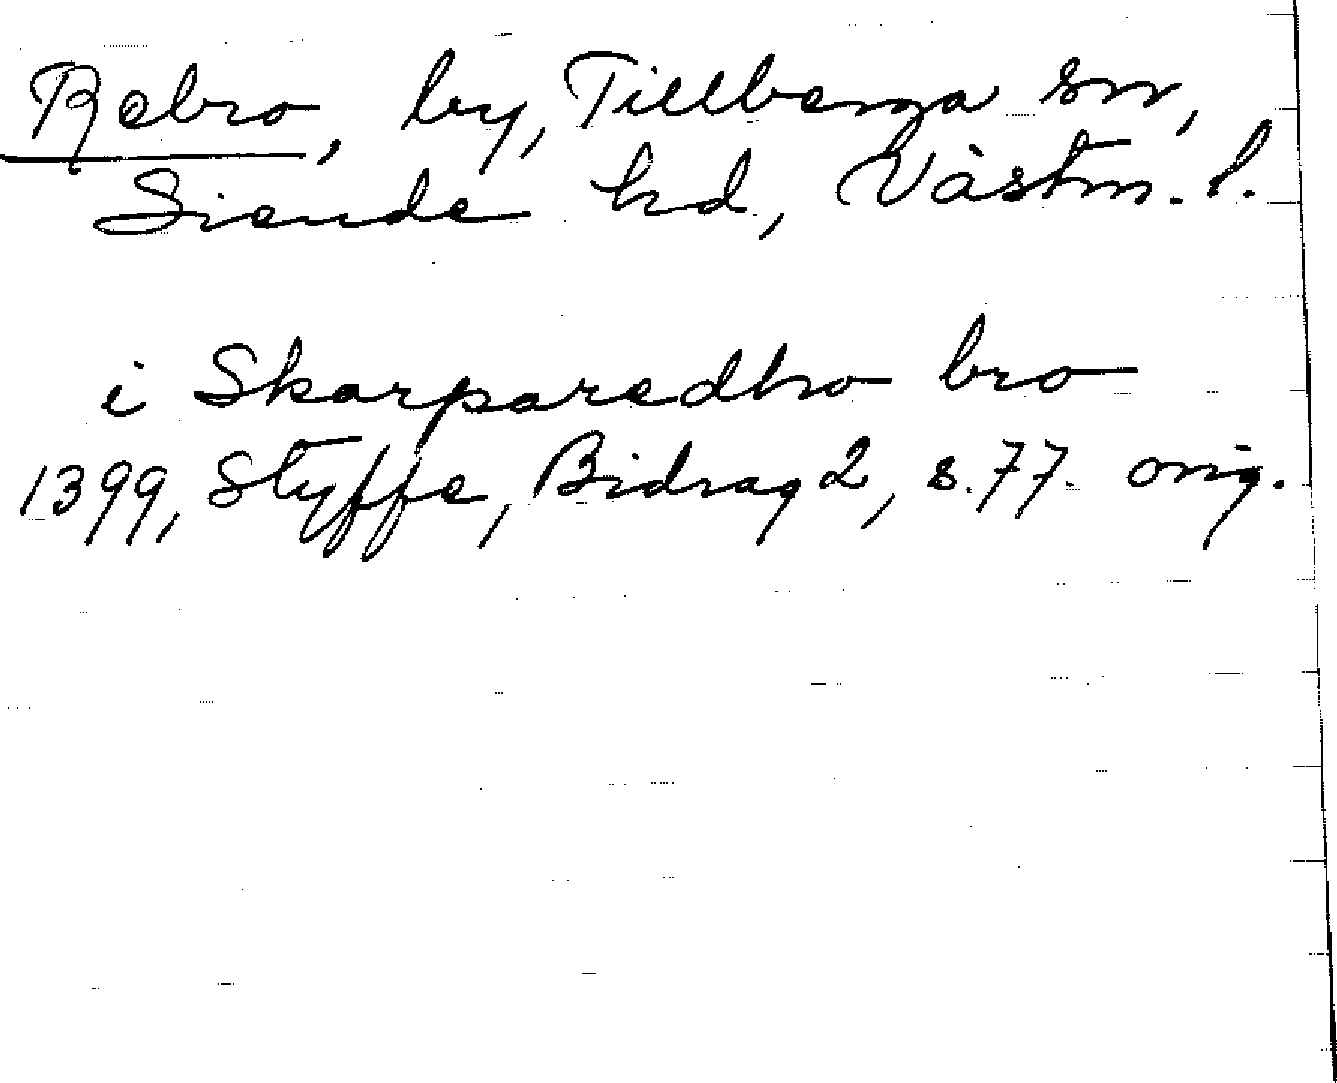 Rebro, by, Tillberga sn,
Siende hd, Västm. l.
i Skarparedbro bro
1399, Styffe, Bidrag 2, s. 77. orig.